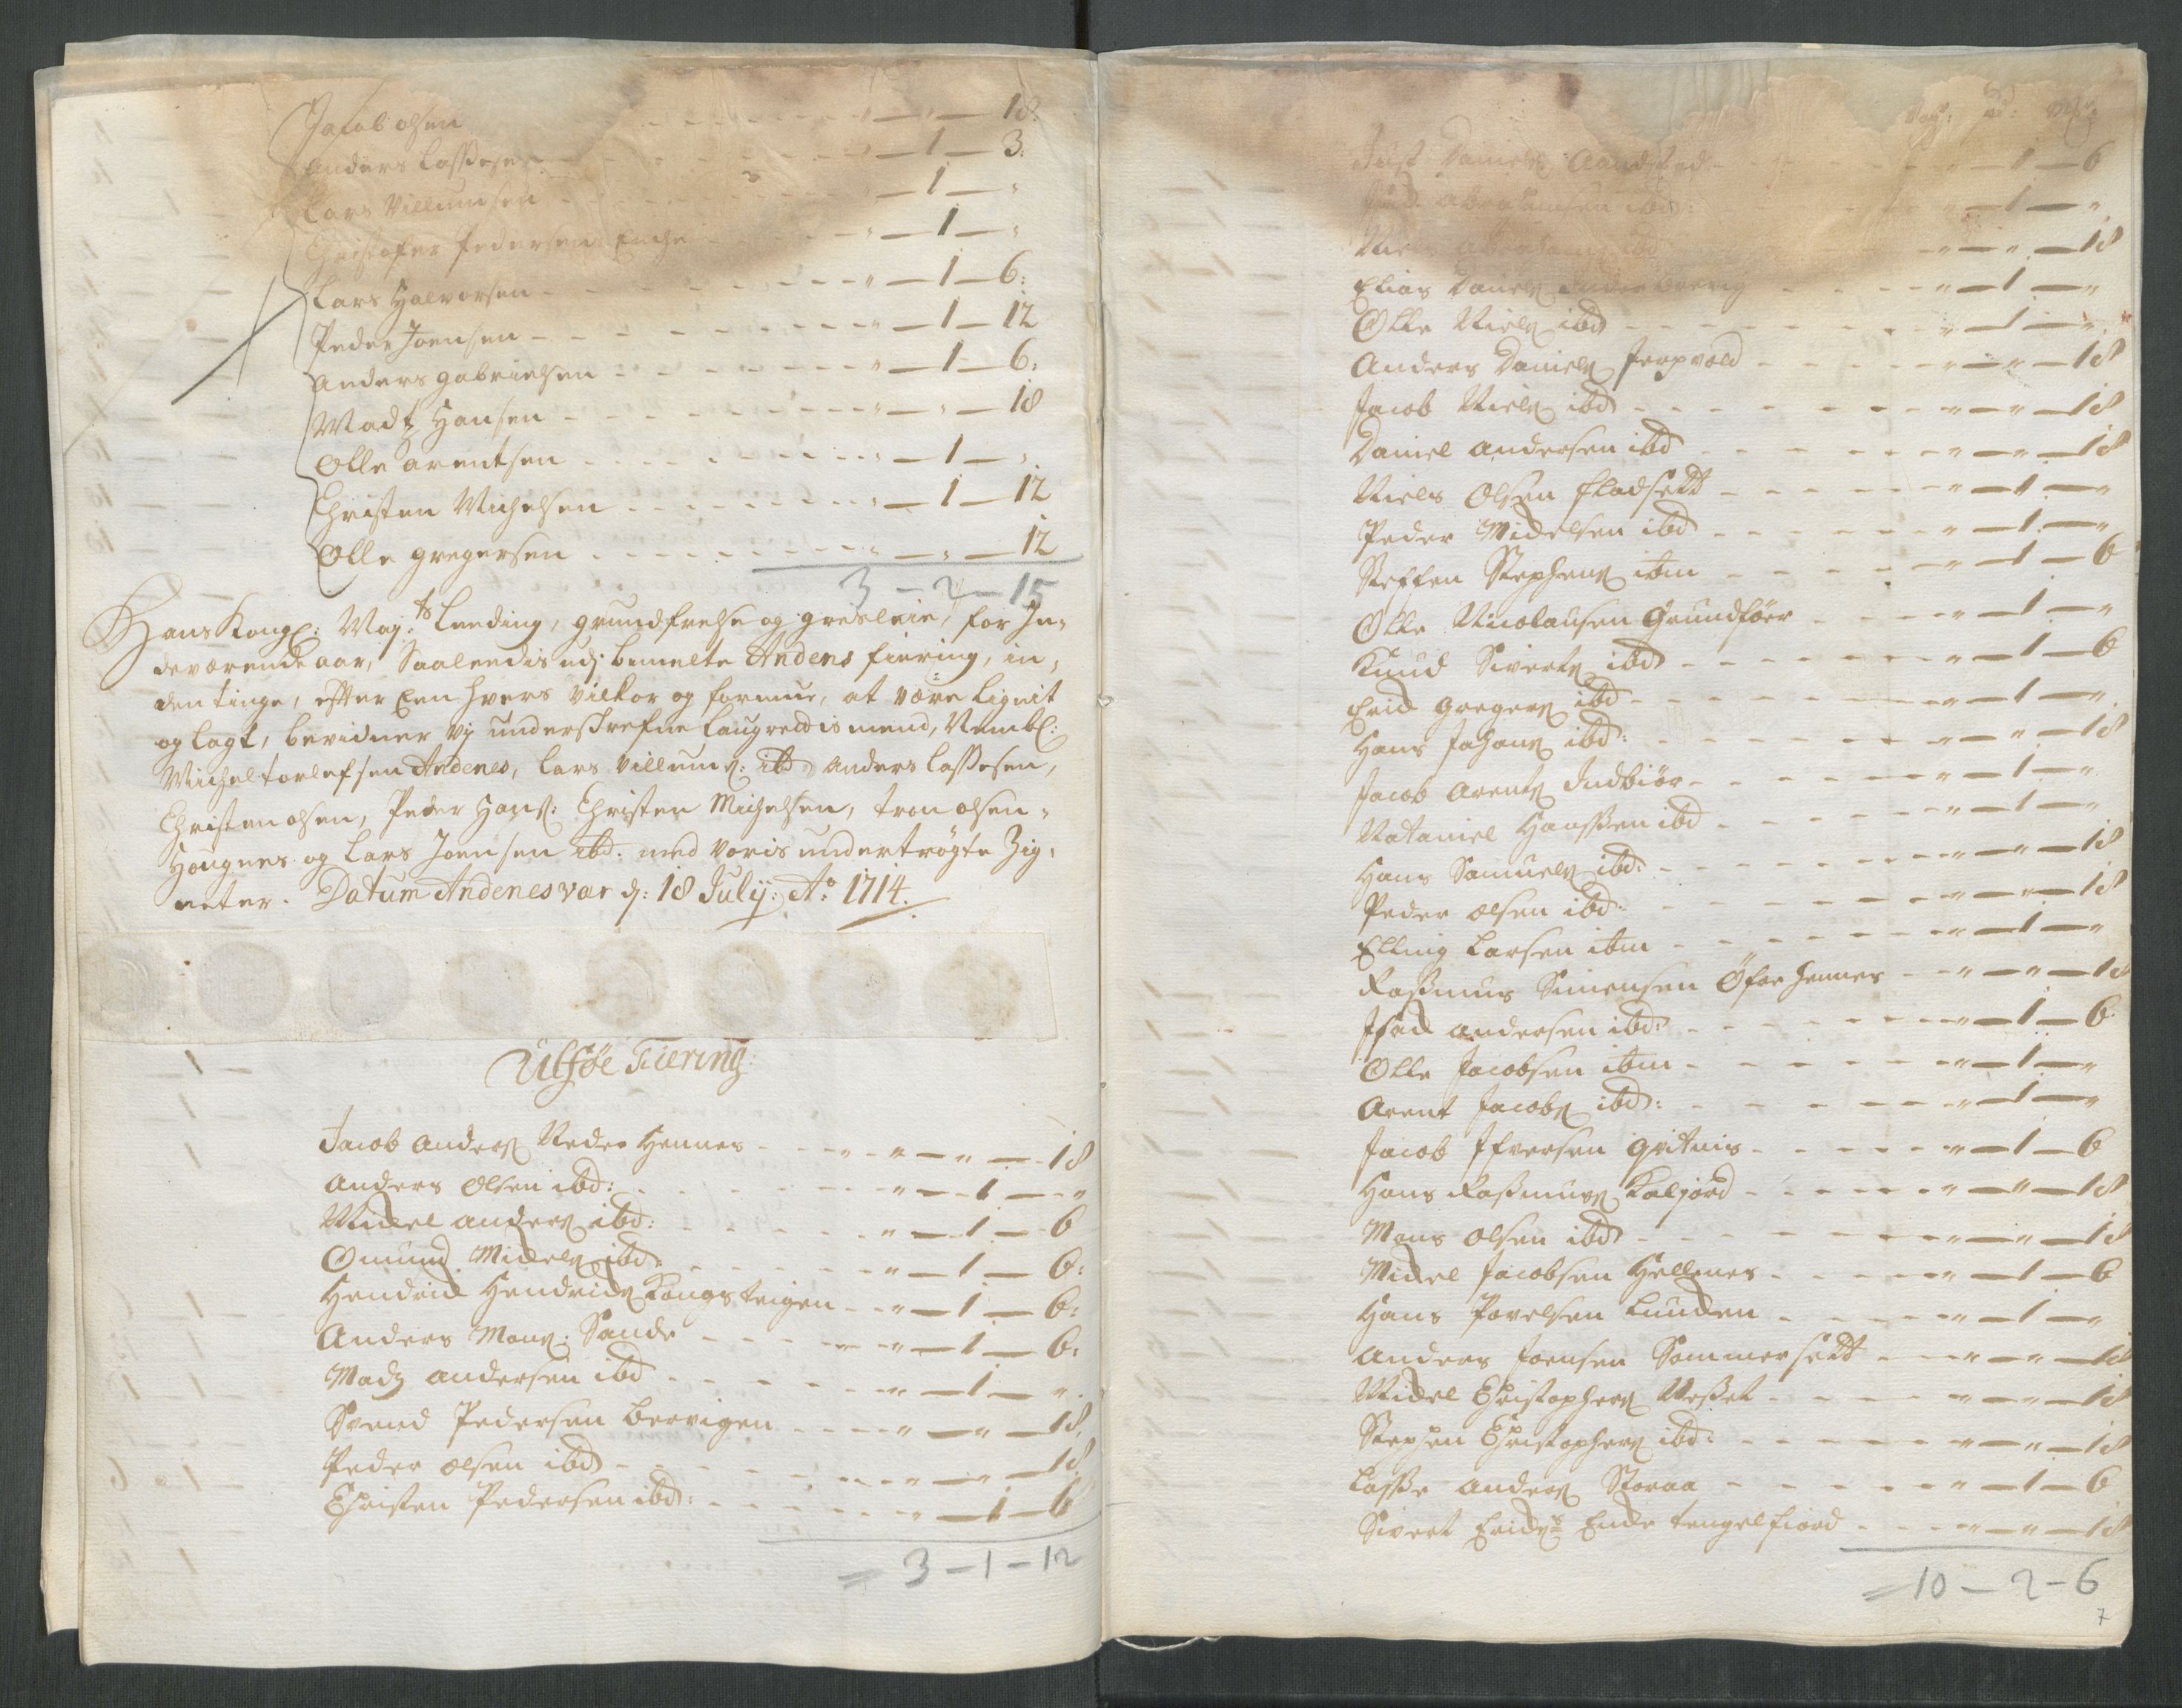 Jacob olsen - - - - " — " — 18:
Anders Lassesen - - - - — 1 — 3:
Lars Villumsen - - - - — 1 — "
Christofer Pedersen Enche - - - " — 1 — "
Lars Halvorsen - - - - " — 1 — 6:
Peder Joensen - - - - " — 1 — 12
Anders gabrielsen - - - - " — 1 — 6:
Madtz Hansen - - - - " — " — 18
Olle arentsen - - - - " — 1 — "
Christen Michelsen - - - - " — 1 — 12
Olle gregersen - - - - " — " — 12
3 - 2 - 15
Hans Kongl: May:ts Leeding, grundfrelse og gresleie, for In-
deværende aar, Saaleedis udj bemelte Andenes fiering, in-
den tinge, efter Een hvers vilkor og formue, at være lignit
og lagt, bevidner vy underskrefne Laugrettis mend, Nembl:
Michel torlefsen Andenes, Lars Villums: ibd Anders Lassesen,
Christen olsen, Peder Hans: Christen Michelsen, tron olsen
Hougnes og Lars Joensen ibd. med voris undertrögte Zig-
neter. Datum Andenes vær d: 18 Julij: Ao 1714.
Ulföe Fiering:
Jacob Anders Neder Hennes - - - " — " — 18
Anders Olsen ibd: - - - " — 1 — "
Mickel Anders ibd: - - - " — 1 — 6
Omund Mickels ibd: - - - " — 1 — 6:
Hendrick Hendricks Kongsteigen - - " — 1 — 6:
Anders Mons: Sande - - - " — 1 — 6:
Madz Andersen ibd - - - " — 1 — "
Svend Pedersen Bervigen - - - " — " — 18.
Peder olsen ibd - - - " — " — 18.
Christen Pedersen ibd: - - - " — 1 — 6
= 3 - 1 - 12
Just Daniels - - - " — 1 — 6
Abrahamsen ibd: - - - " — 1 — "
- - - " — " — 18
Elias Daniels - - - " — 1 — "
Olle Niels ibd - - - " — 1 — "
Anders Daniels Jerpvold - - - " — " — 18
Jacob Niels ibd - - - " — " — 18
Daniel Andersen ibd - - - " — " — 18
Niels Olsen Fladsett - - - " — 1 — "
Peder Mickelsen ibd - - - " — 1 — "
Steffen Stephens itm - - - " — 1 — 6
Olle Nicolausen Grundföer - - - " — 1 — "
Knud Siverts ibd - - - " — 1 — 6
Erick Gregers ibd - - - " — 1 — "
Hans Johans ibd: - - - " — " — 18
Jacob Arents Indbiör - - - " — 1 — "
Nataniel Hanssen ibd - - - " — 1 — "
Hans Samuels ibd: - - - " — " — 18
Peder olsen ibd: - - - " — " — 18
Elling Larsen itm - - - " — 1 — "
Rasmus Simensen Öfer Hennes - - " — " — 18
Isack Andersen ibd: - - - " — 1 — 6
Olle Jacobsen itm - - - " — 1 — "
Arent Jacobs ibd: - - - " — 1 — "
Jacob Ifversen qvitnis - - - " — 1 — 6
Hans Rasmus Kaljord - - - " — " — 18
Mons Olsen ibd - - - " — " — 18
Mickel Jacobsen Hellnes - - - " — 1 — 6
Hans Povelsen Lunden - - - " — 1 — "
Anders Joensen Sommersett - - " — " — 18
Mickel Christophers Nesset - - - " — " — 18
Stephen Christophers ibd: - - - " — " — 18
Lasse Anders Storaa - - - " — 1 — 6
Sivert Ericks Ende tengelfiord - - " — " — 18
= 10 - 2 - 6
7